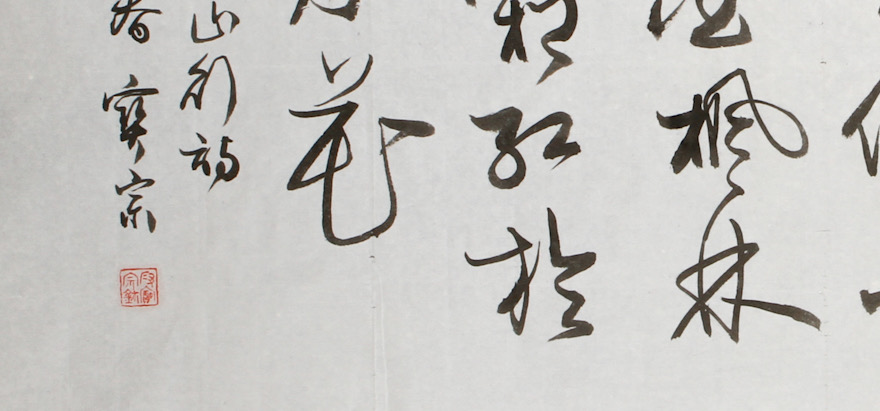 楓林
紅於
月花
山行詩
春寶宗